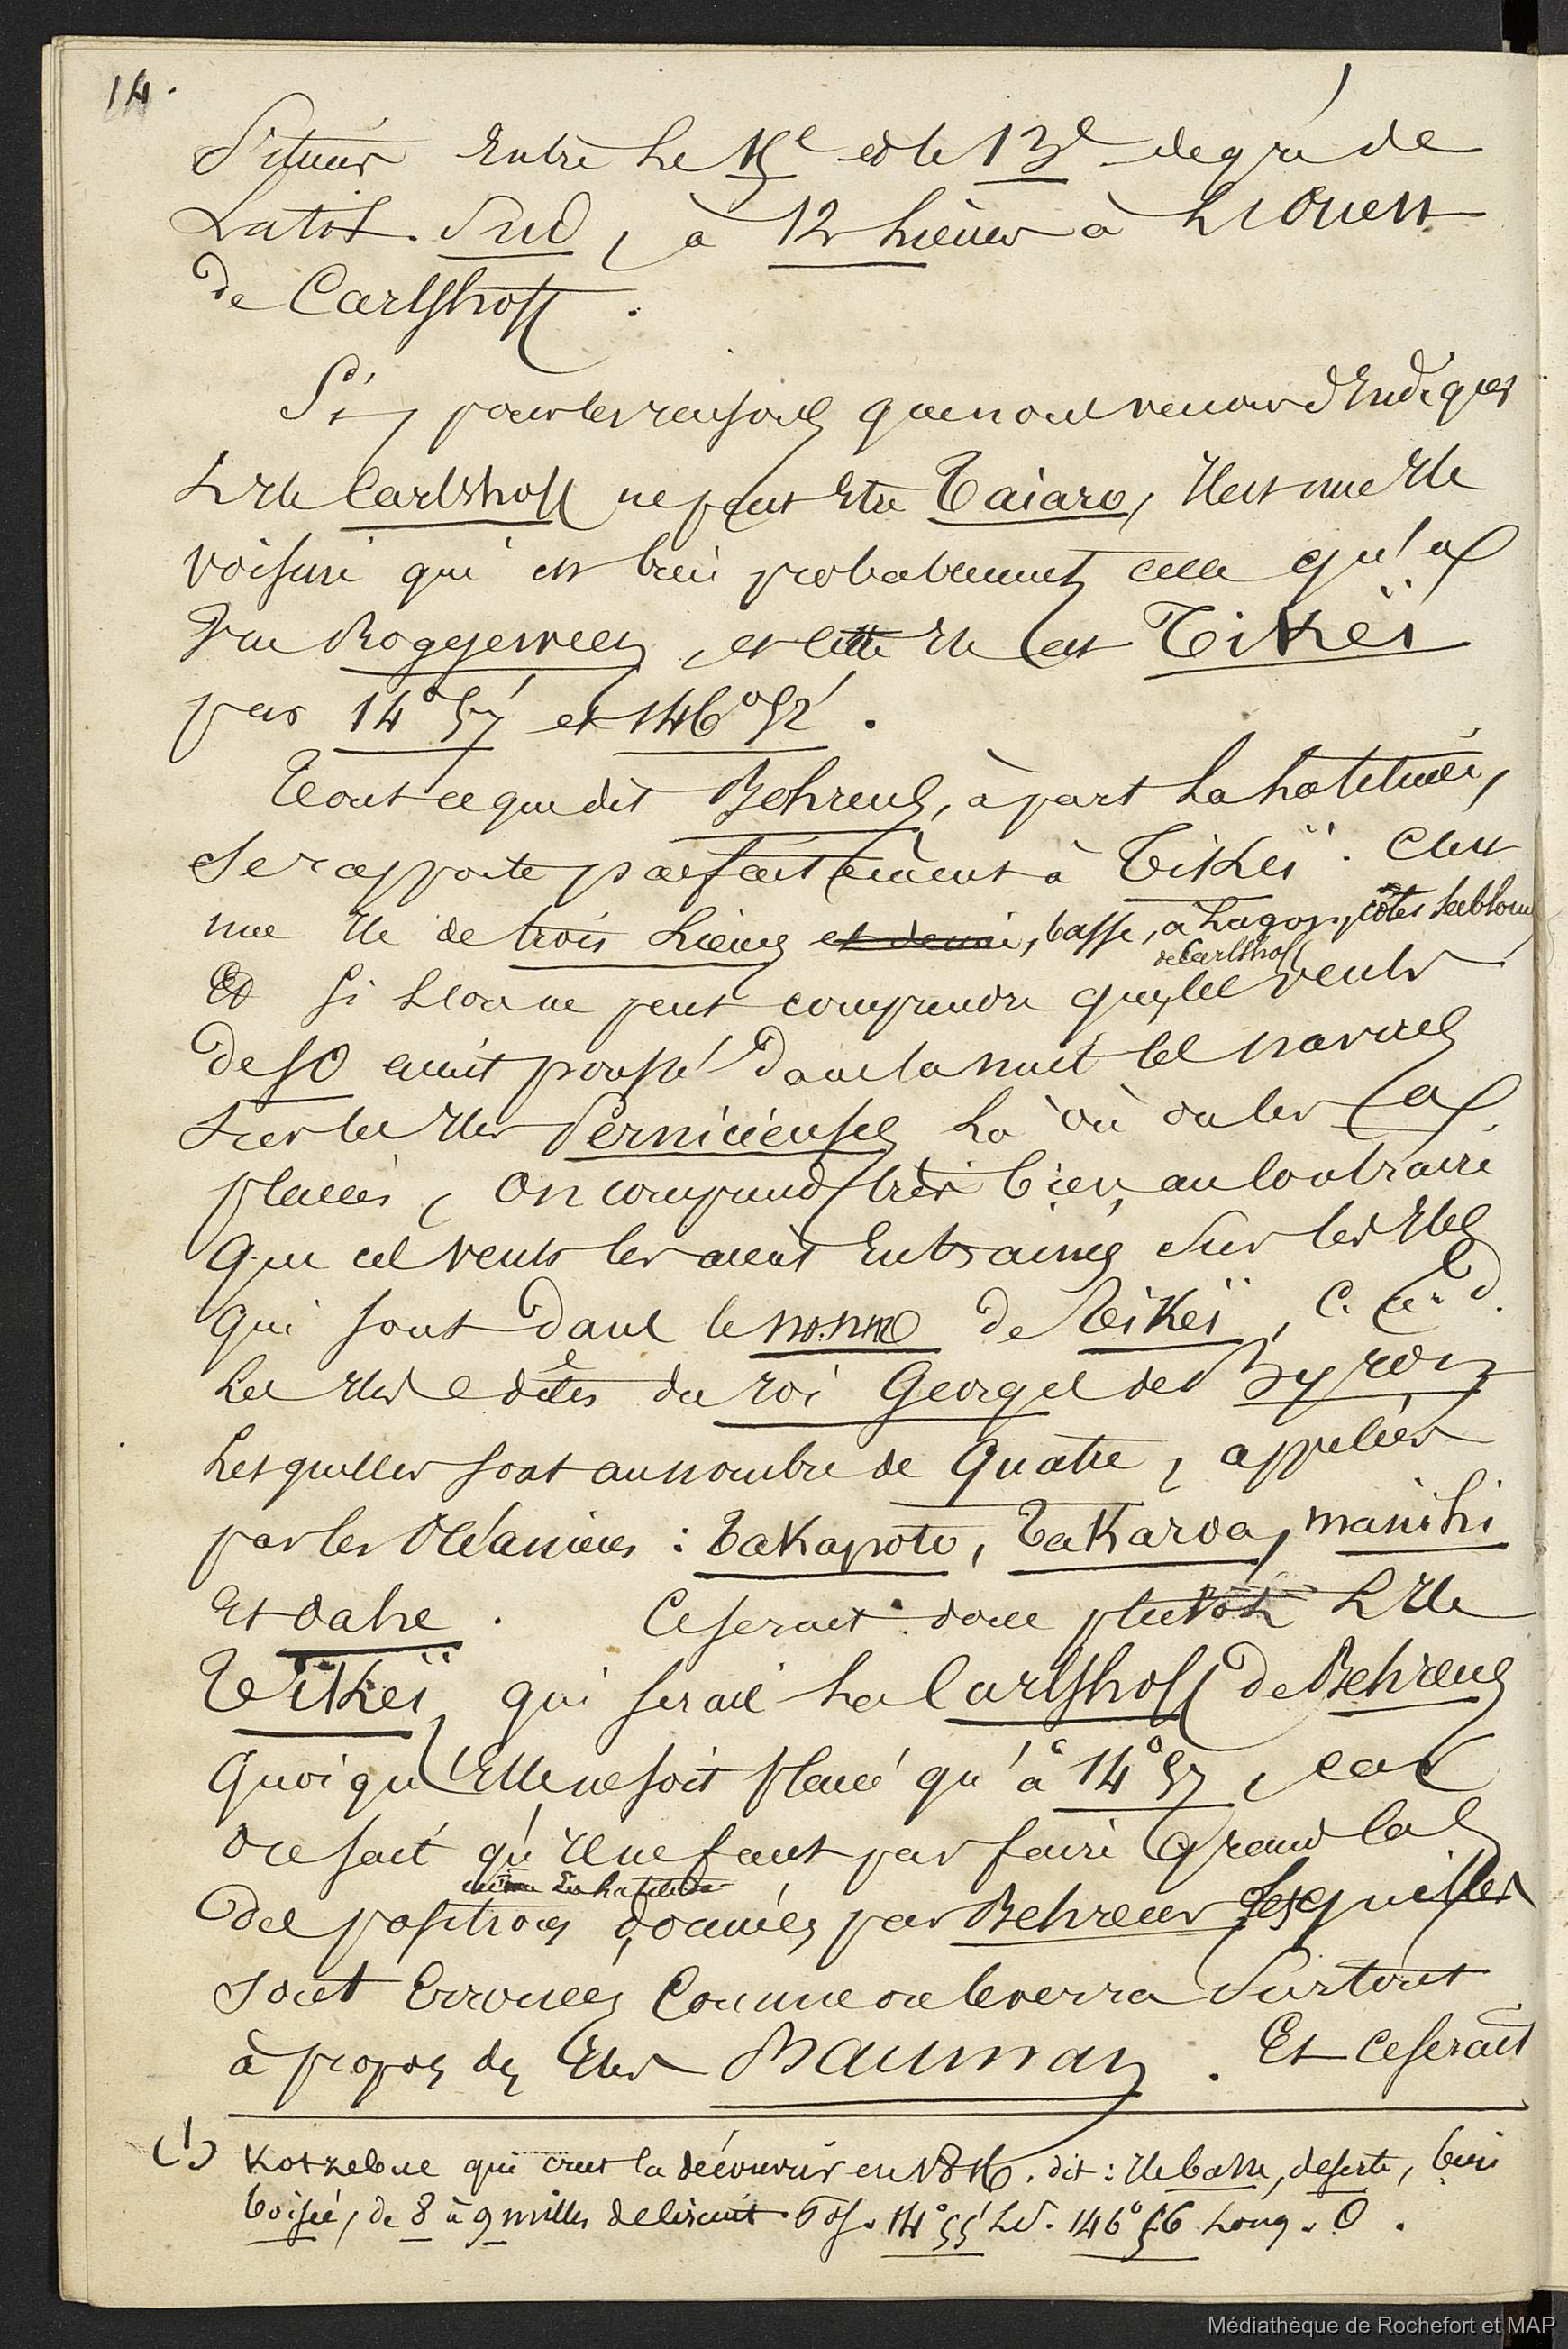 14.
Situées entre le 15e et le 13e degré de
Latit. Sud, à 12 lieues à L'Ouest
de Carlshoff.
Si, pour les raisons que nous venons d'indiquer
L'Ile Carlshoff ne peut être Taiaro, Il est une Ile
voisine qui est bien probablement celle qu'a
vu Roggeween, et cette Ile est Tikeï
par 14° 57' et 146° 52'.
Tout ce que dit Behrens, à part La Latitude,
se rapporte parfaitement à Tikeï. C'est
une Ile de trois Lieues et demie, basse, à Lagon, côtes sablon
Et si L'on ne peut comprendre que les vents
de Carlshoff
de SO aient poussé dans la nuit les navires
sur les Iles Pernicieuses Là où on les a
placées, on comprend très bien, au contraire
que ces vents les aient entrainés sur les Iles
qui sont dans le N.NO de Teikeï, C. à. d.
Les Iles dites du roi Georges de Byron
Lesquelles sont au nombre de quatre, appelées
par les Océaniens : Takapoto, Takaroa, manihi
et Oahe. Ce serait donc plutôt L'Ile
Tikeï, qui serait La Carlshoff de Behrens
quoiqu'Elle ne soit placée qu'à 14° 57, car
on sait qu'il ne faut pas faire grand cas
des positions données par Behrens lesquelles
sont Erronées Comme on le verra Surtout
à propos des Iles Bauman. Et ce serait
(1) Kotzebue qui crut la découvrir en 1816. dit : Ile basse, déserte, bien
boisée, de 8 à 9 milles de circuit. Pos. 14° 55' L.S. 146° 56 Long. O.
Médiathèque de Rochefort et MAP